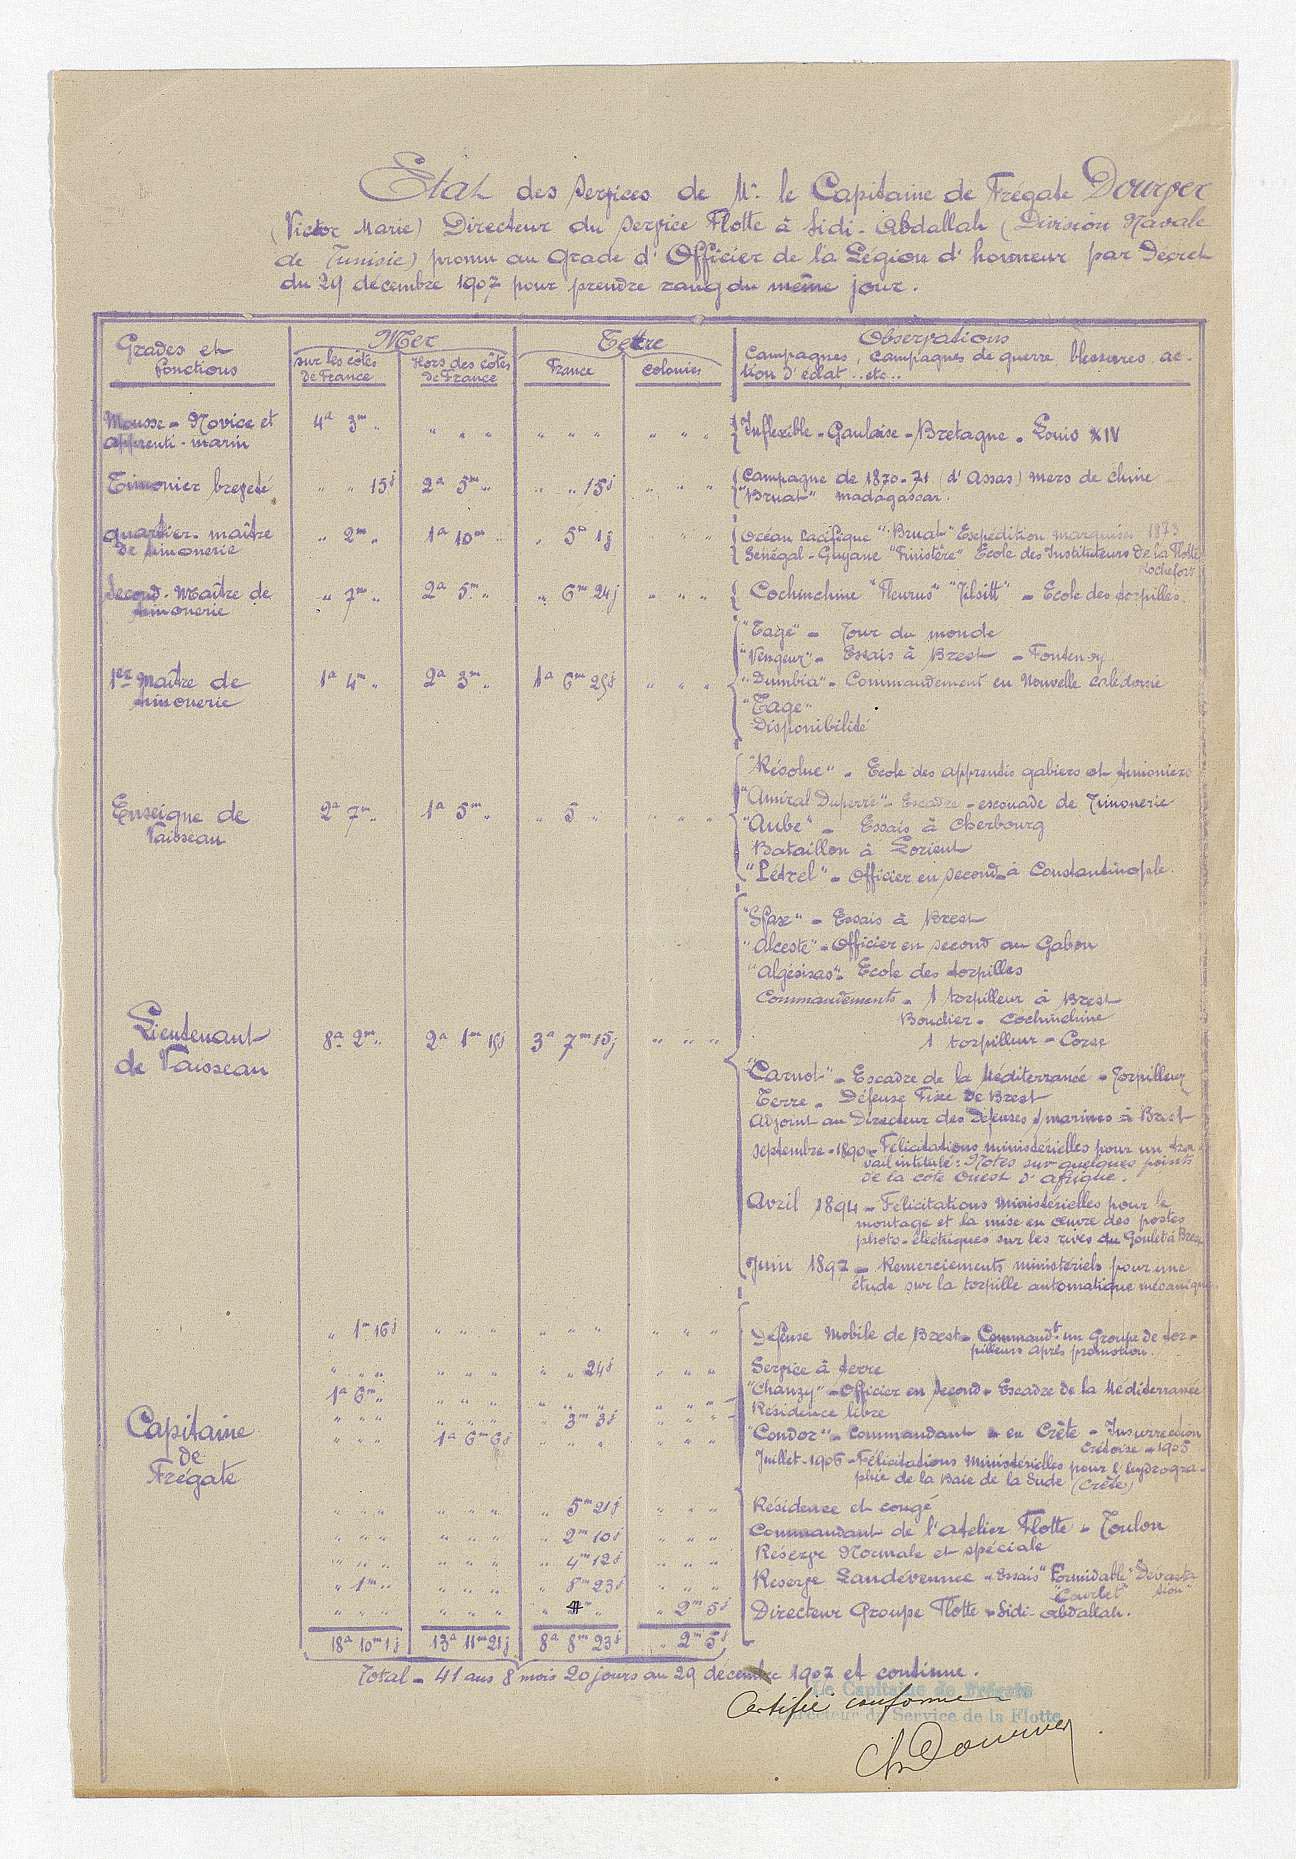 Etat des services de Mr. le Capitaine de Frégate Dourver
(Victor Marie) Directeur du service Flotte à Sidi-Abdallah (Division Navale
de Tunisie) promu au Grade d'Officier de la Légion d'honneur par Décret
du 29 décembre 1907 pour prendre rang du même jour.
Grades et fonctions
Mer
Terre
Observations
sur les côtes de France
Hors des côtes de France
France
Colonies
Campagnes, Campagnes de guerre blessures, ac-
tion d'éclat .. etc..
Mousse - Novice et apprenti-marin
4a 3m "
" " "
" " "
" " "
Inflexible - Gauloise - Bretagne - Louis XIV
Timonier breveté
" " 15j
2a 5m "
" " 15j
" " "
Campagne de 1870-71 (d'Assas) mers de Chine
"Bruat" Madagascar.
Quartier-maître de timonerie
" 2m "
1a 10m "
" 5m 1j
" " "
Océan Pacifique "Bruat" Expédition marquises 1873
Sénégal - Guyane "Finistère" Ecole des Instituteurs de la Flotte
Rochefort
Second-Maître de timonerie
" 7m "
2a 5m "
" 6m 24j
" " "
Cochinchine "Fleurus" "Tilsitt" - Ecole des torpilles.
1er Maître de timonerie
1a 4m "
2a 3m "
1a 6m 25j
" " "
"Tage" - Tour du monde
"Vengeur" - Essais à Brest - Fontenoy
"Dumbéa" - Commandement en Nouvelle Calédonie
"Tage"
Disponibilité
Enseigne de Vaisseau
2a 7m "
1a 5m "
" 5 "
" " "
"Résolue" - Ecole des apprentis gabiers et timoniers
"Amiral Duperré" - Escadre - escouade de Timonerie
"Aube" - Essais à Cherbourg
Bataillon à Lorient
"Pétrel" - Officier en second à Constantinople.
Lieutenant de Vaisseau
8a 2m "
2a 1m 15j
3a 7m 15j
" " "
"Sfax" - Essais à Brest
"Alceste" - Officier en second au Gabon
"Algésiras" - Ecole des torpilles
Commandements - 1 torpilleur à Brest
Boudier - Cochinchine
1 torpilleur - Corse
"Carnot" - Escadre de la Méditerranée - Torpilleur
Terre - Défense Fixe de Brest
Adjoint au Directeur des Défenses s/marines à Brest
Septembre - 1890 - Félicitations ministérielles pour un tra-
vail intitulé: Notes sur quelques points
de la côte Ouest d'Afrique.
Avril 1894 - Félicitations Ministérielles pour le
montage et la mise en œuvre des postes
photo-électriques sur les rives du Goulet à Brest
Juin 1897 - Remerciements ministériels pour une
étude sur la torpille automatique mécanique.
Capitaine de Frégate
" 1m 16j
" " "
" " "
" " "
Défense Mobile de Brest - Commandt un Groupe de tor-
pilleurs après promotion.
" " "
" " "
" " 24j
" " "
Service à terre
1a 6m "
" " "
" " "
" " "
"Chanzy" - Officier en Second - Escadre de la Méditerranée
" " "
" " "
" 3m 3j
" " "
Résidence libre
" " "
1a 6m 6j
" " "
" " "
"Condor" - Commandant - en Crête - Insurrection
Crétoise - 1905
Juillet - 1906 - Félicitations Ministérielles pour l'hydrogra-
phie de la Baie de la Sude (Crête)
" "
" " "
" 5m 21j
" " "
Résidence et congé
" " "
" " "
" 2m 10j
" " "
Commandant de l'atelier Flotte - Toulon
" " "
" " "
" 4m 12j
" " "
Réserve Normale et spéciale
" 1m "
" " "
" 8m 23j
" " "
Reserve Landévennec - Essais "Formidable" "Dévasta-
"Courbet" tion"
" " "
" " "
" "
" 2m 5j
Directeur Groupe Flotte - Sidi-Abdallah.
18a 10m 1j
13a 11m 21j
8a 8m 23j
" 2m 5j
Total - 41 ans 8 mois 20 jours au 29 décembre 1907 et continue.
Le Capitaine de Frégate
Certifié conforme
Directeur du Service de la Flotte
Dourver